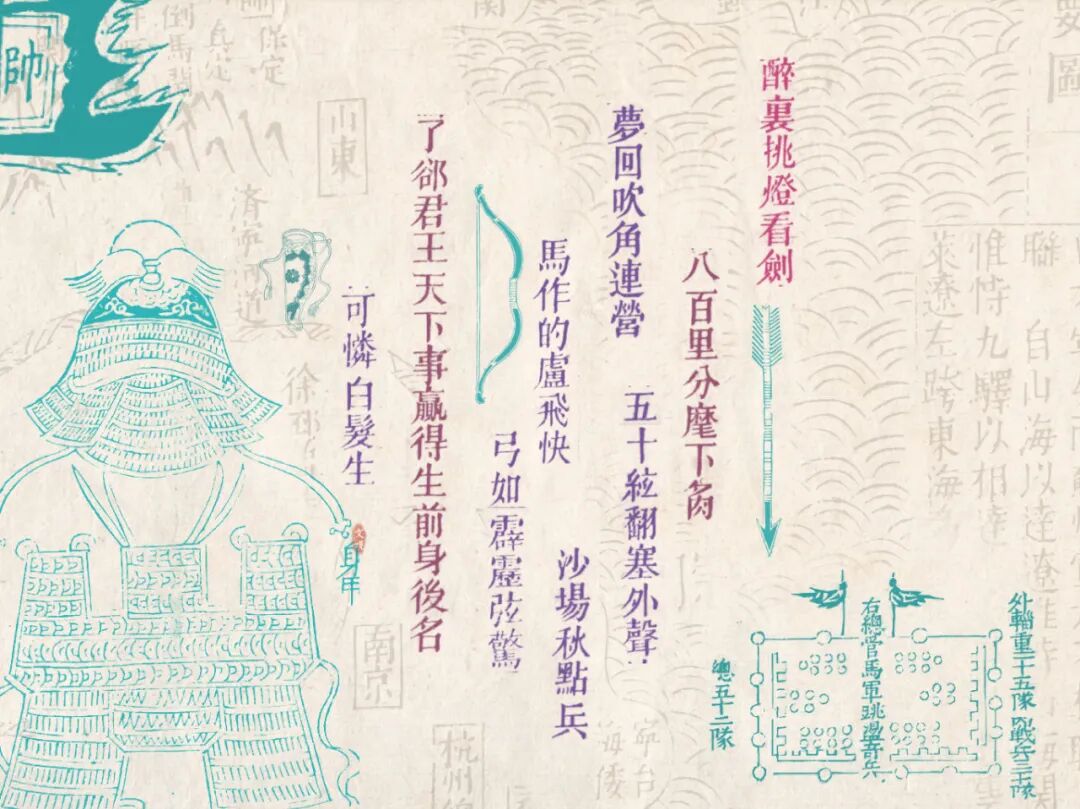 醉裏挑燈看劍
夢回吹角連營
八百里分麾下炙
五十絃翻塞外聲
沙場秋點兵
馬作的盧飛快
弓如霹靂弦驚
了卻君王天下事贏得生前身後名
可憐白髮生
帥
身甲
外輜重十五隊 戰兵三十隊
右總管馬軍跳盪奇兵
總五十二隊
要圖
聯 自山海以達遼
惟恃九驛以相達
萊遼左跨東海
保定
倒馬關
山東
濟寧河道
徐
南京
杭州